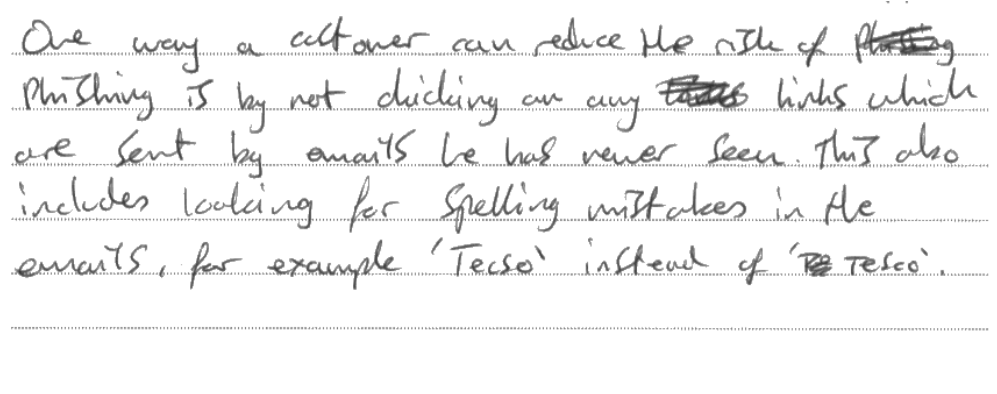 One way a cutomer can reduce the risk of
Phishing is by not clicking on any links which
are sent by emails he has never seen. This also
includes looking for spelling mistakes in the
emails, for example 'Tecso' instead of 'Tesco'.